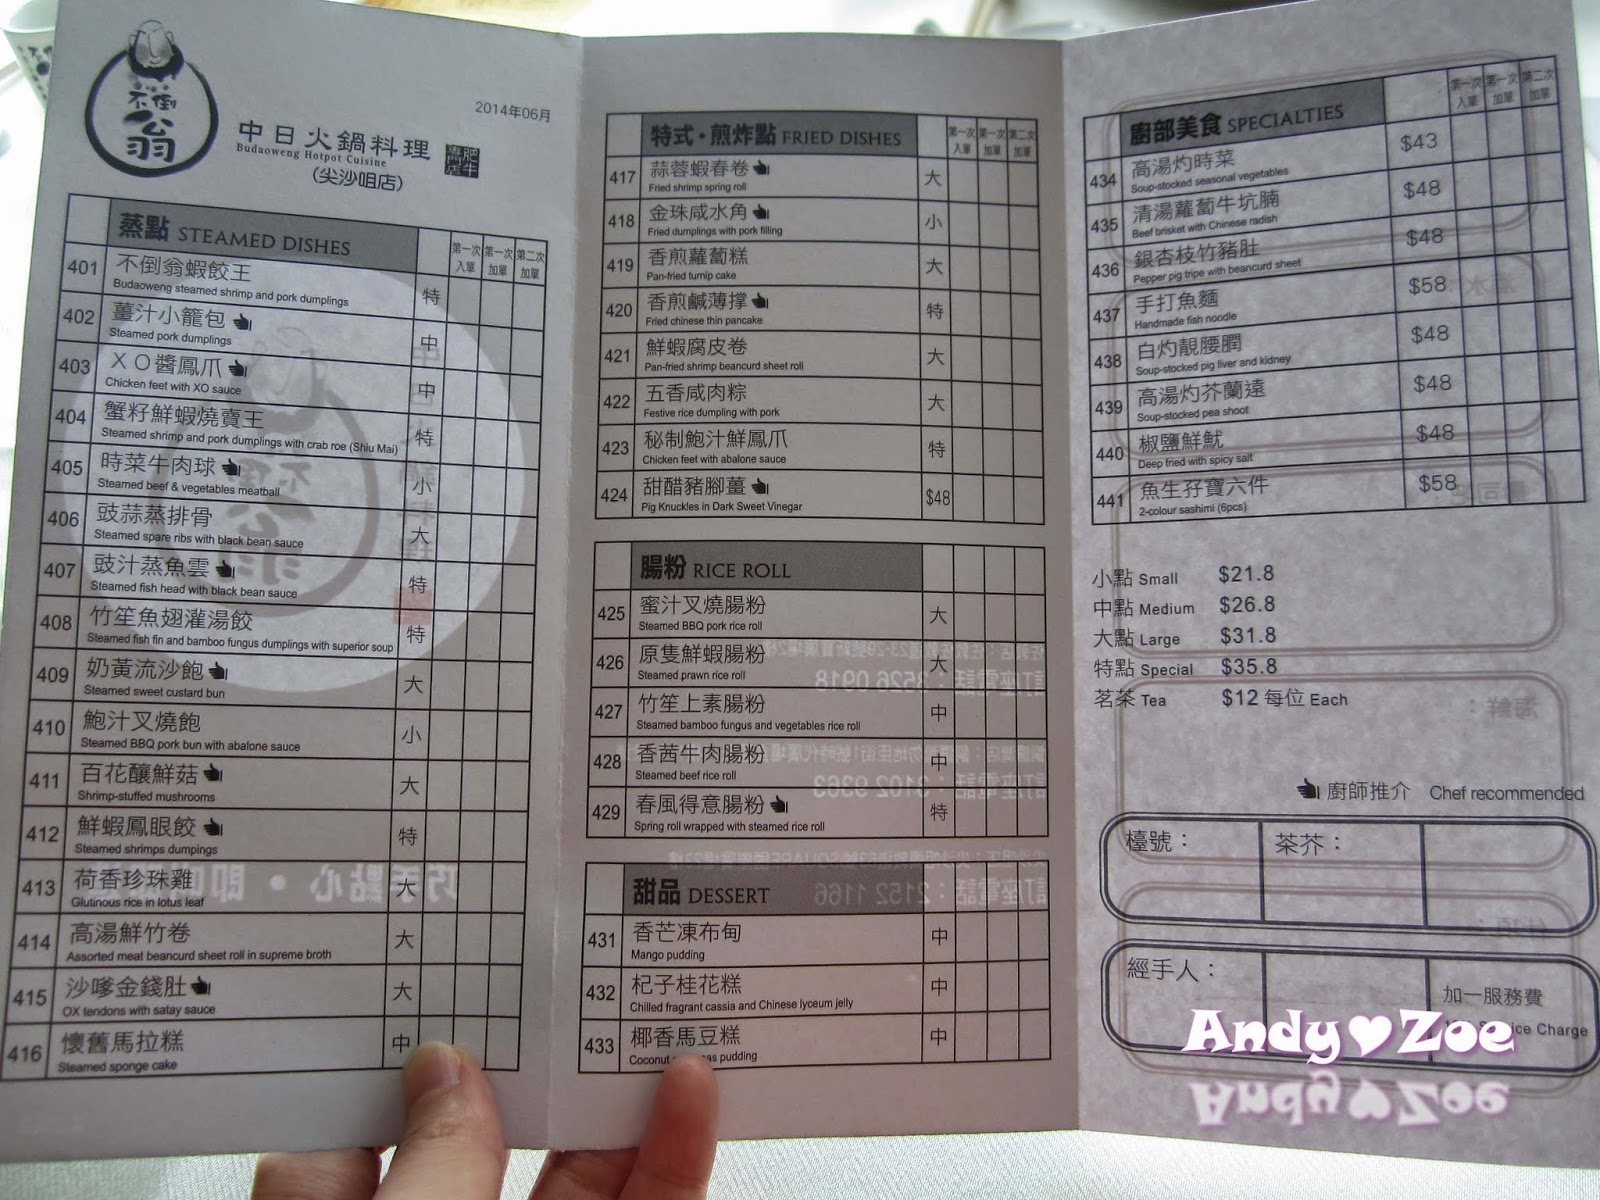 不倒翁
2014年06月
中日火鍋料理
Budaoweng Hotpot Cuisine
(尖沙咀店)
蒸點 STEAMED DISHES 第一次入單 第一次加單 第二次加單
401 不倒翁蝦餃王 特
Budaoweng steamed shrimp and pork dumplings
402 薑汁小籠包 中
Steamed pork dumplings
403 XO醬鳳爪 中
Chicken feet with XO sauce
404 蟹籽鮮蝦燒賣王 特
Steamed shrimp and pork dumplings with crab roe (Shiu Mai)
405 時菜牛肉球 小
Steamed beef & vegetables meatball
406 豉蒜蒸排骨 大
Steamed spare ribs with black bean sauce
407 豉汁蒸魚雲 特
Steamed fish head with black bean sauce
408 竹笙魚翅灌湯餃 特
Steamed fish fin and bamboo fungus dumplings with superior soup
409 奶黃流沙飽 大
Steamed sweet custard bun
410 鮑汁叉燒飽 小
Steamed BBQ pork bun with abalone sauce
411 百花釀鮮菇 大
Shrimp-stuffed mushrooms
412 鮮蝦鳳眼餃 特
Steamed shrimps dumpings
413 荷香珍珠雞 大
Glutinous rice in lotus leaf
414 高湯鮮竹卷 大
Assorted meat beancurd sheet roll in supreme broth
415 沙嗲金錢肚 大
OX tendons with satay sauce
416 懷舊馬拉糕 中
Steamed sponge cake
特式・煎炸點 FRIED DISHES 第一次入單 第一次加單 第二次加單
417 蒜蓉蝦春卷 大
Fried shrimp spring roll
418 金珠咸水角 小
Fried dumplings with pork filling
419 香煎蘿蔔糕 大
Pan-fried turnip cake
420 香煎鹹薄撐 特
Fried chinese thin pancake
421 鮮蝦腐皮卷 大
Pan-fried shrimp beancurd sheet roll
422 五香咸肉粽 大
Festive rice dumpling with pork
423 秘制鮑汁鮮鳳爪 特
Chicken feet with abalone sauce
424 甜醋豬腳薑 $48
Pig Knuckles in Dark Sweet Vinegar
腸粉 RICE ROLL
425 蜜汁叉燒腸粉 大
Steamed BBQ pork rice roll
426 原隻鮮蝦腸粉 大
Steamed prawn rice roll
427 竹笙上素腸粉 中
Steamed bamboo fungus and vegetables rice roll
428 香茜牛肉腸粉 中
Steamed beef rice roll
429 春風得意腸粉 特
Spring roll wrapped with steamed rice roll
甜品 DESSERT
431 香芒凍布甸 中
Mango pudding
432 杞子桂花糕 中
Chilled fragrant cassia and Chinese lyceum jelly
433 椰香馬豆糕 中
Coconut pudding
廚部美食 SPECIALTIES 第一次入單 第一次加單 第二次加單
434 高湯灼時菜 $43
Soup-stocked seasonal vegetables
435 清湯蘿蔔牛坑腩 $48
Beef brisket with Chinese radish
436 銀杏枝竹豬肚 $48
Pepper pig tripe with beancurd sheet
437 手打魚麵 $58
Handmade fish noodle
438 白灼靚腰膶 $48
Soup-stocked pig liver and kidney
439 高湯灼芥蘭遠 $48
Soup-stocked pea shoot
440 椒鹽鮮魷 $48
Deep fried with spicy salt
441 魚生孖寶六件 $58
2-colour sashimi (6pcs)
小點 Small $21.8
中點 Medium $26.8
大點 Large $31.8
特點 Special $35.8
茗茶 Tea $12 每位 Each
廚師推介 Chef recommended
檯號： 茶芥：
經手人： 加一服務費
Charge
Andy♥Zoe